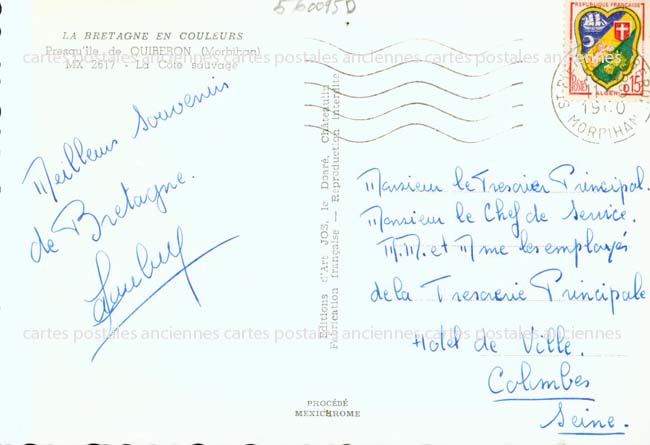 560095D
LA BRETAGNE EN COULEURS
Presqu'île de QUIBERON (Morbihan)
MX 2617 - La Côte sauvage
cartes postales anciennes cartes postales anciennes cartes postales anciennes
Meilleurs souvenirs
de Bretagne.
Editions d'Art JOS. le Doaré, Châteaulin
Fabrication française — Reproduction interdite
REPUBLIQUE FRANÇAISE
15
ALGER
1960
MORBIHAN
Monsieur le Tresorier Principal.
Monsieur le Chef de Service.
M.M. et Mme les employés
de la Tresorerie Principale
Hotel de Ville.
Colombes
Seine.
cartes postales anciennes cartes postales anciennes cartes postales anciennes
PROCÉDÉ
MEXICHROME